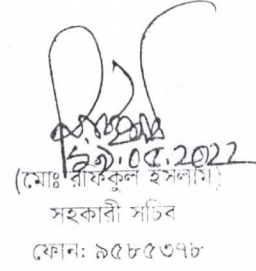 ২৯.০৫.2022
(মোঃ রফিকুল ইসলাম)
সহকারী সচিব
ফোন: ৯৫৮৫৩৭৮